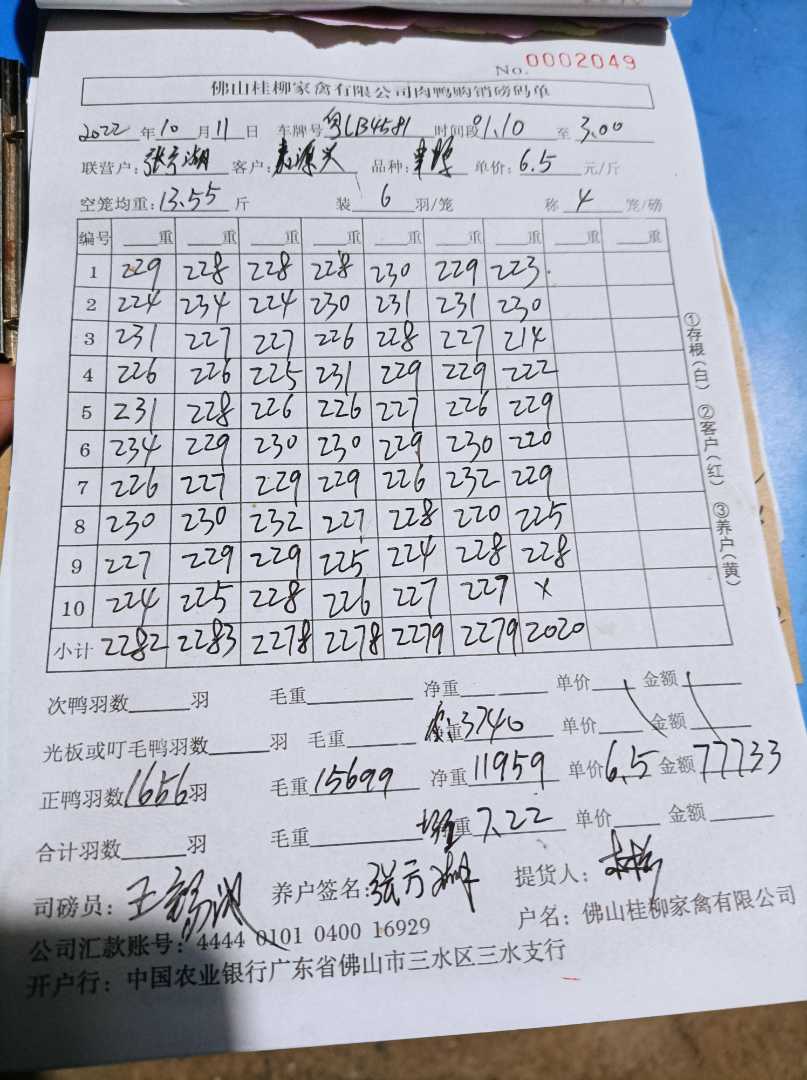 No. 0002049
佛山桂柳家禽有限公司肉鸭购销磅码单
2022 年 10 月 11 日 车牌号 粤LB4581 时间段 01.10 至 3.00
联营户: 张 湖 客户: 源兴 品种: 单价: 6.5 元/斤
空笼均重: 13.55 斤 装 6 羽/笼 称 4 笼/磅
编号 重 重 重 重 重 重 重 重 重
1 229 228 228 228 230 229 223
2 224 234 224 230 231 231 230
3 231 227 227 226 228 227 214
4 226 226 225 231 229 229 222
5 231 228 226 226 227 226 229
6 234 229 230 230 229 230 220
7 226 227 229 229 226 232 229
8 230 230 232 227 228 220 225
9 227 229 229 225 224 228 228
10 224 225 228 226 227 227 x
小计 2282 2283 2278 2278 2279 2279 2020
①存根(白) ②客户(红) ③养户(黄)
次鸭羽数 羽 毛重 净重 单价 金额
光板或叮毛鸭羽数 羽 毛重 重 3740 单价 金额
正鸭羽数 1656 羽 毛重 15699 净重 11959 单价 6.5 金额 77733
合计羽数 羽 毛重 重 7.22 单价 金额
司磅员: 王 养户签名: 张 提货人:
公司汇款账号: 4444 0101 0400 16929 户名: 佛山桂柳家禽有限公司
开户行: 中国农业银行广东省佛山市三水区三水支行